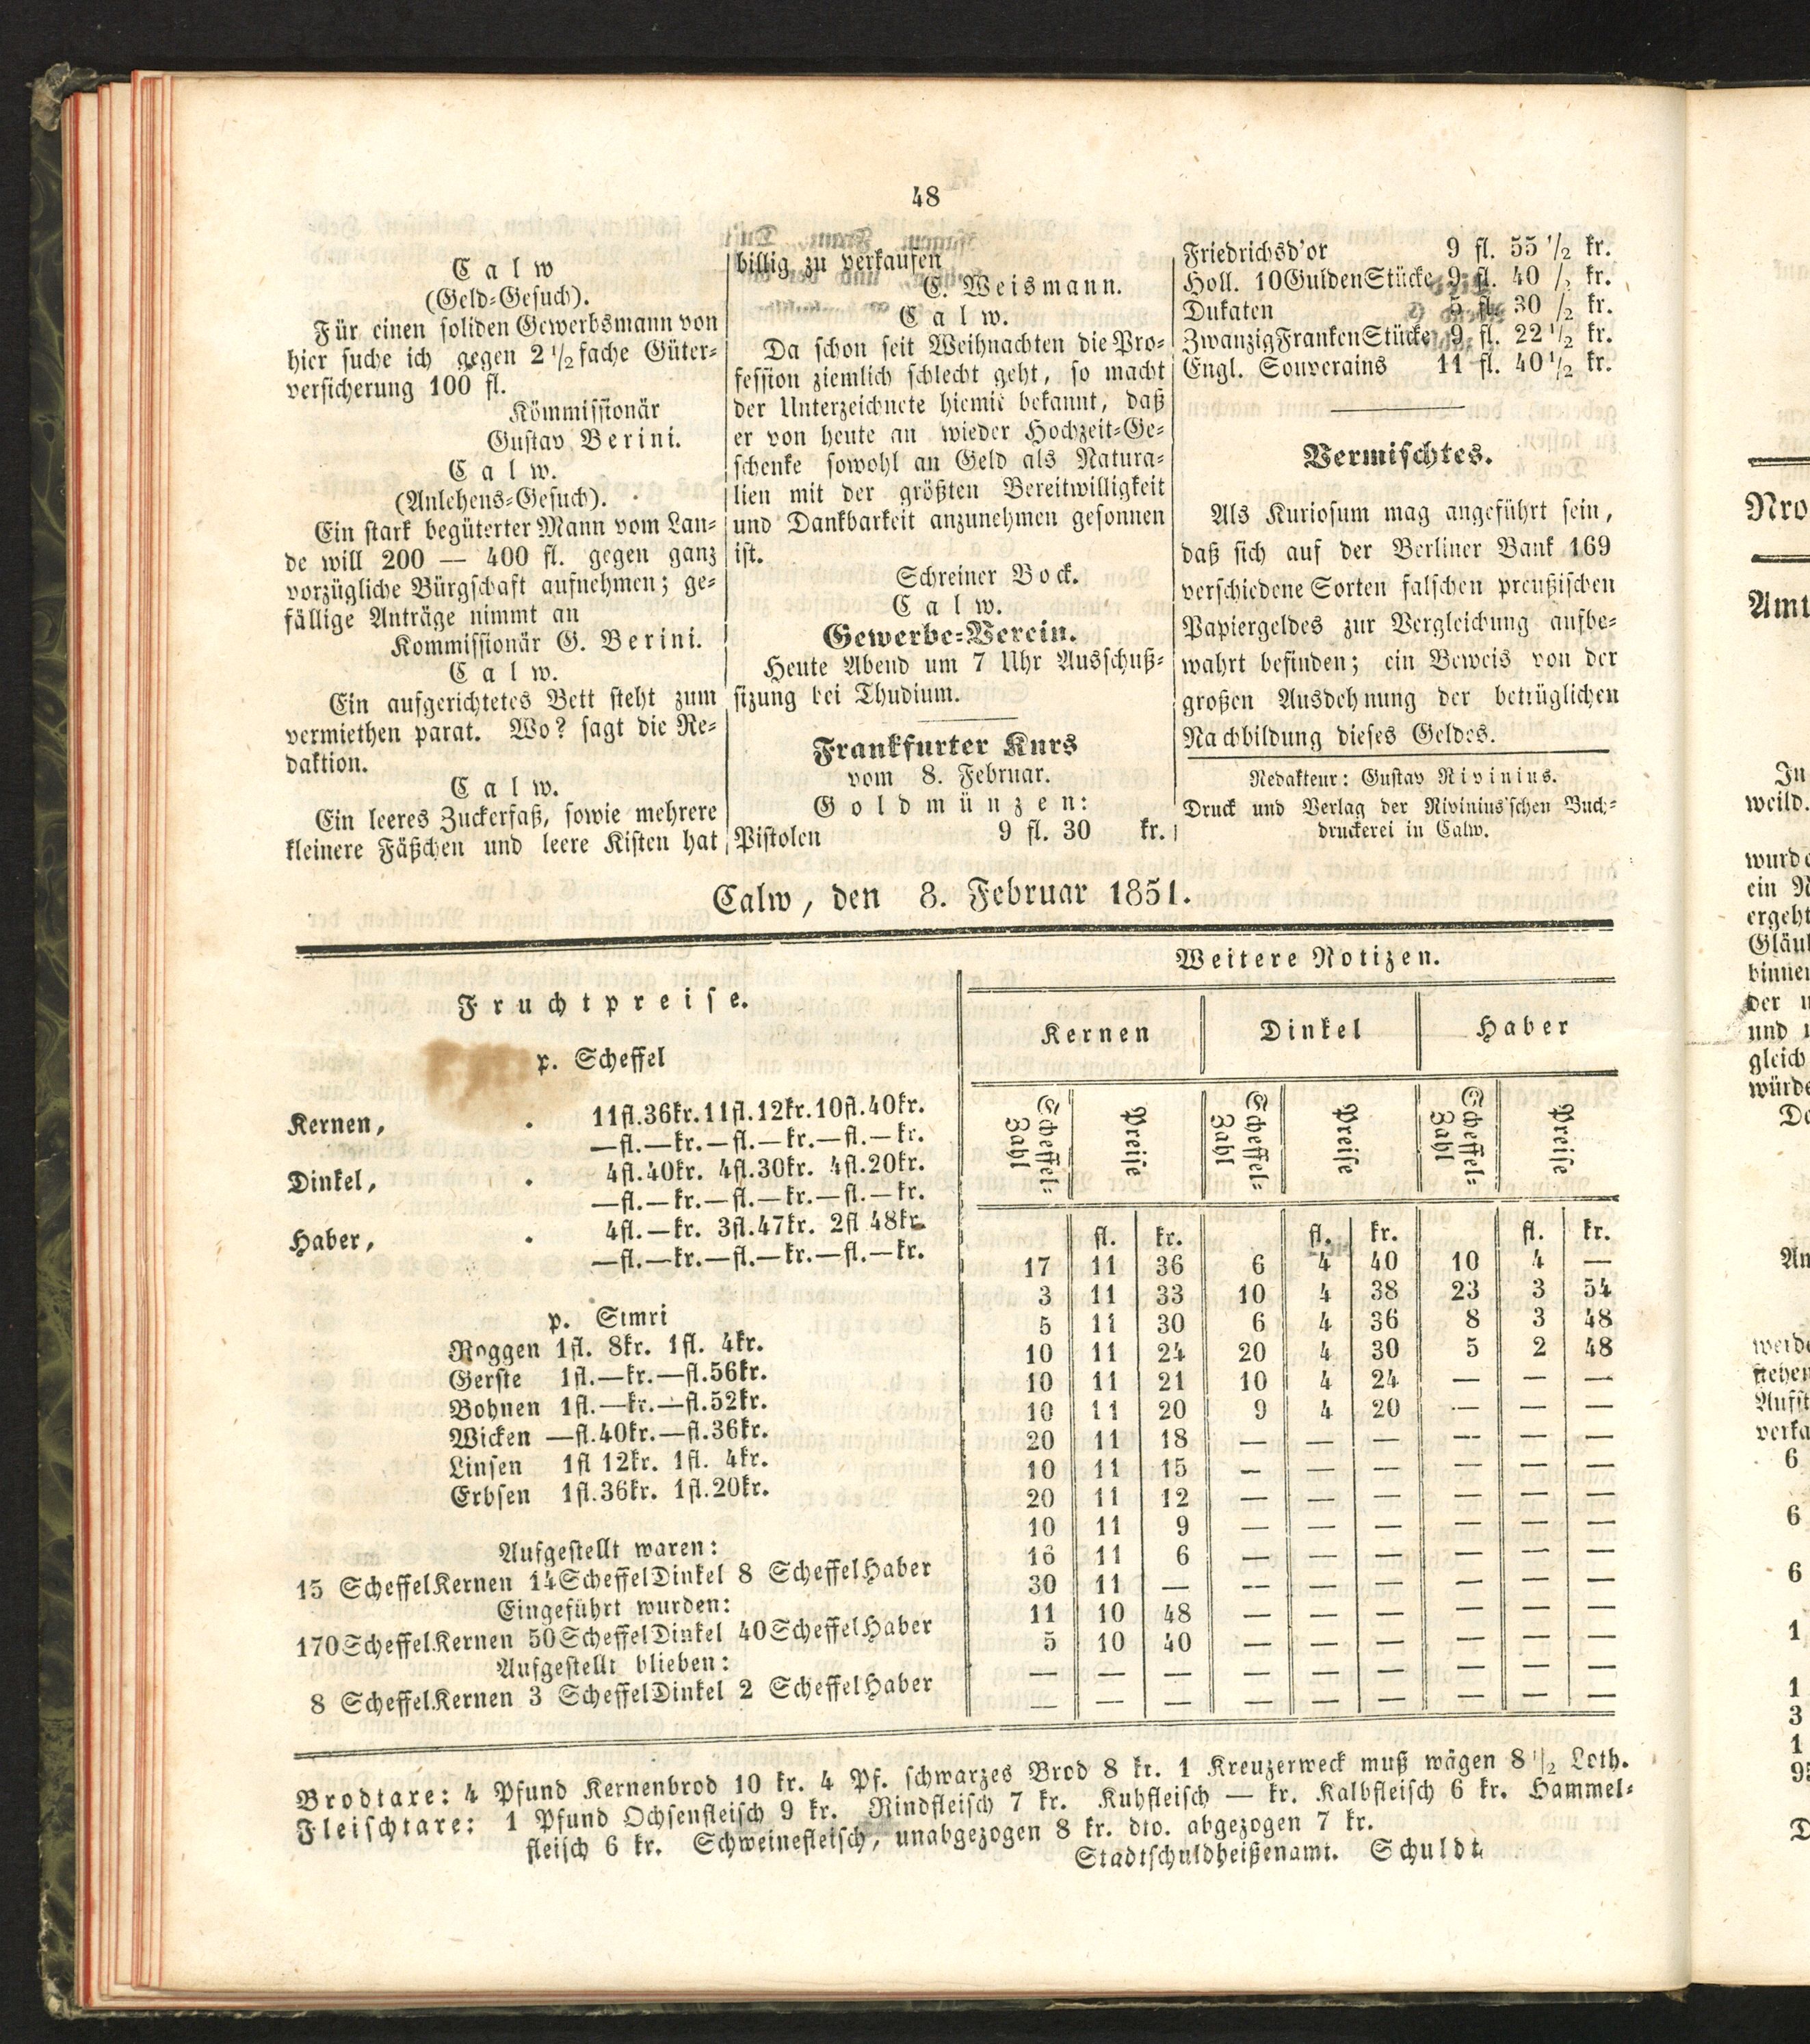 48
Calw
(Geld-Gesuch).
Für einen soliden Gewerbsmann von
hier suche ich gegen 2 1/2 fache Güter-
versicherung 100 fl.
Kommissionär
Gustav Berini.
Calw.
(Anlehens-Gesuch).
Ein stark begüterter Mann vom Lan-
de will 200 — 400 fl. gegen ganz
vorzügliche Bürgschaft aufnehmen; ge-
fällige Anträge nimmt an
Kommissionär G. Berini.
Calw.
Ein aufgerichtetes Bett steht zum
vermiethen parat. Wo? sagt die Re-
daktion.
Calw.
Ein leeres Zuckerfaß, sowie mehrere
kleinere Fäßchen und leere Kisten hat
billig zu verkaufen
C. Weismann.
Calw.
Da schon seit Weihnachten die Pro-
fession ziemlich schlecht geht, so macht
der Unterzeichnete hiemit bekannt, daß
er von heute an wieder Hochzeit-Ge-
schenke sowohl an Geld als Natura-
lien mit der größten Bereitwilligkeit
und Dankbarkeit anzunehmen gesonnen
ist.
Schreiner Bock.
Calw.
Gewerbe-Verein.
Heute Abend um 7 Uhr Ausschuß-
sizung bei Thudium.
Frankfurter Kurs
vom 8. Februar.
Goldmünzen:
Pistolen 9 fl. 30 kr.
Friedrichsd'or 9 fl. 55 1/2 kr.
Holl. 10 Gulden Stücke 9 fl. 40 /2 kr.
Dukaten 5 fl. 30 /2 kr.
Zwanzig Franken Stücke 9 fl. 22 1/2 kr.
Engl. Souverains 11 fl. 40 1/2 kr.
Vermischtes.
Als Kuriosum mag angeführt sein,
daß sich auf der Berliner Bank 169
verschiedene Sorten falschen preußischen
Papiergeldes zur Vergleichung aufbe-
wahrt befinden; ein Beweis von der
großen Ausdehnung der betrüglichen
Nachbildung dieses Geldes.
Redakteur: Gustav Rivinius.
Druck und Verlag der Rivinius'schen Buch-
druckerei in Calw.
Calw, den 8. Februar 1851.
Fruchtpreise.
p. Scheffel
Kernen, . 11fl.36kr.11fl.12kr.10fl.40kr.
—fl.—kr.—fl.—kr.—fl.—kr.
Dinkel, . 4fl.40kr. 4fl.30kr. 4fl.20kr.
—fl.—kr.—fl.—kr.—fl.—kr.
Haber, . 4fl.—kr. 3fl.47kr. 2fl 48kr.
—fl.—kr.—fl.—kr.—fl.—kr.
p. Simri
Roggen 1fl. 8kr. 1fl. 4kr.
Gerste 1fl.—kr.—fl.56kr.
Bohnen 1fl.—kr.—fl.52kr.
Wicken —fl.40kr.—fl.36kr.
Linsen 1fl 12kr. 1fl. 4kr.
Erbsen 1fl.36kr. 1fl.20kr.
Aufgestellt waren:
15 Scheffel Kernen 14 Scheffel Dinkel 8 Scheffel Haber
Eingeführt wurden:
170 Scheffel Kernen 50 Scheffel Dinkel 40 Scheffel Haber
Aufgestellt blieben:
8 Scheffel Kernen 3 Scheffel Dinkel 2 Scheffel Haber
Weitere Notizen.
Kernen Dinkel Haber
Scheffel-Zahl Preise Scheffel-Zahl Preise Scheffel-Zahl Preise
fl. kr. fl. kr. fl. kr.
17 11 36 6 4 40 10 4 —
3 11 33 10 4 38 23 3 54
5 11 30 6 4 36 8 3 48
10 11 24 20 4 30 5 2 48
10 11 21 10 4 24 — — —
10 11 20 9 4 20 — — —
20 11 18 — — — — — —
10 11 15 — — — — — —
20 11 12 — — — — — —
10 11 9 — — — — — —
16 11 6 — — — — — —
30 11 — — — — — — —
11 10 48 — — — — — —
5 10 40 — — — — — —
— — — — — — — — —
— — — — — — — — —
Brodtaxe: 4 Pfund Kernenbrod 10 kr. 4 Pf. schwarzes Brod 8 kr. 1 Kreuzerweck muß wägen 8 1/2 Loth.
Fleischtaxe: 1 Pfund Ochsenfleisch 9 kr. Rindfleisch 7 kr. Kuhfleisch — kr. Kalbfleisch 6 kr. Hammel-
fleisch 6 kr. Schweinefleisch, unabgezogen 8 kr. dto. abgezogen 7 kr.
Stadtschuldheißenamt. Schuldt.
Nro
Amt
In
weild.
wurde
ein
ergeht
Gläub
binnen
der
und
gleich
würde
An
6
6
6
1
1
3
1